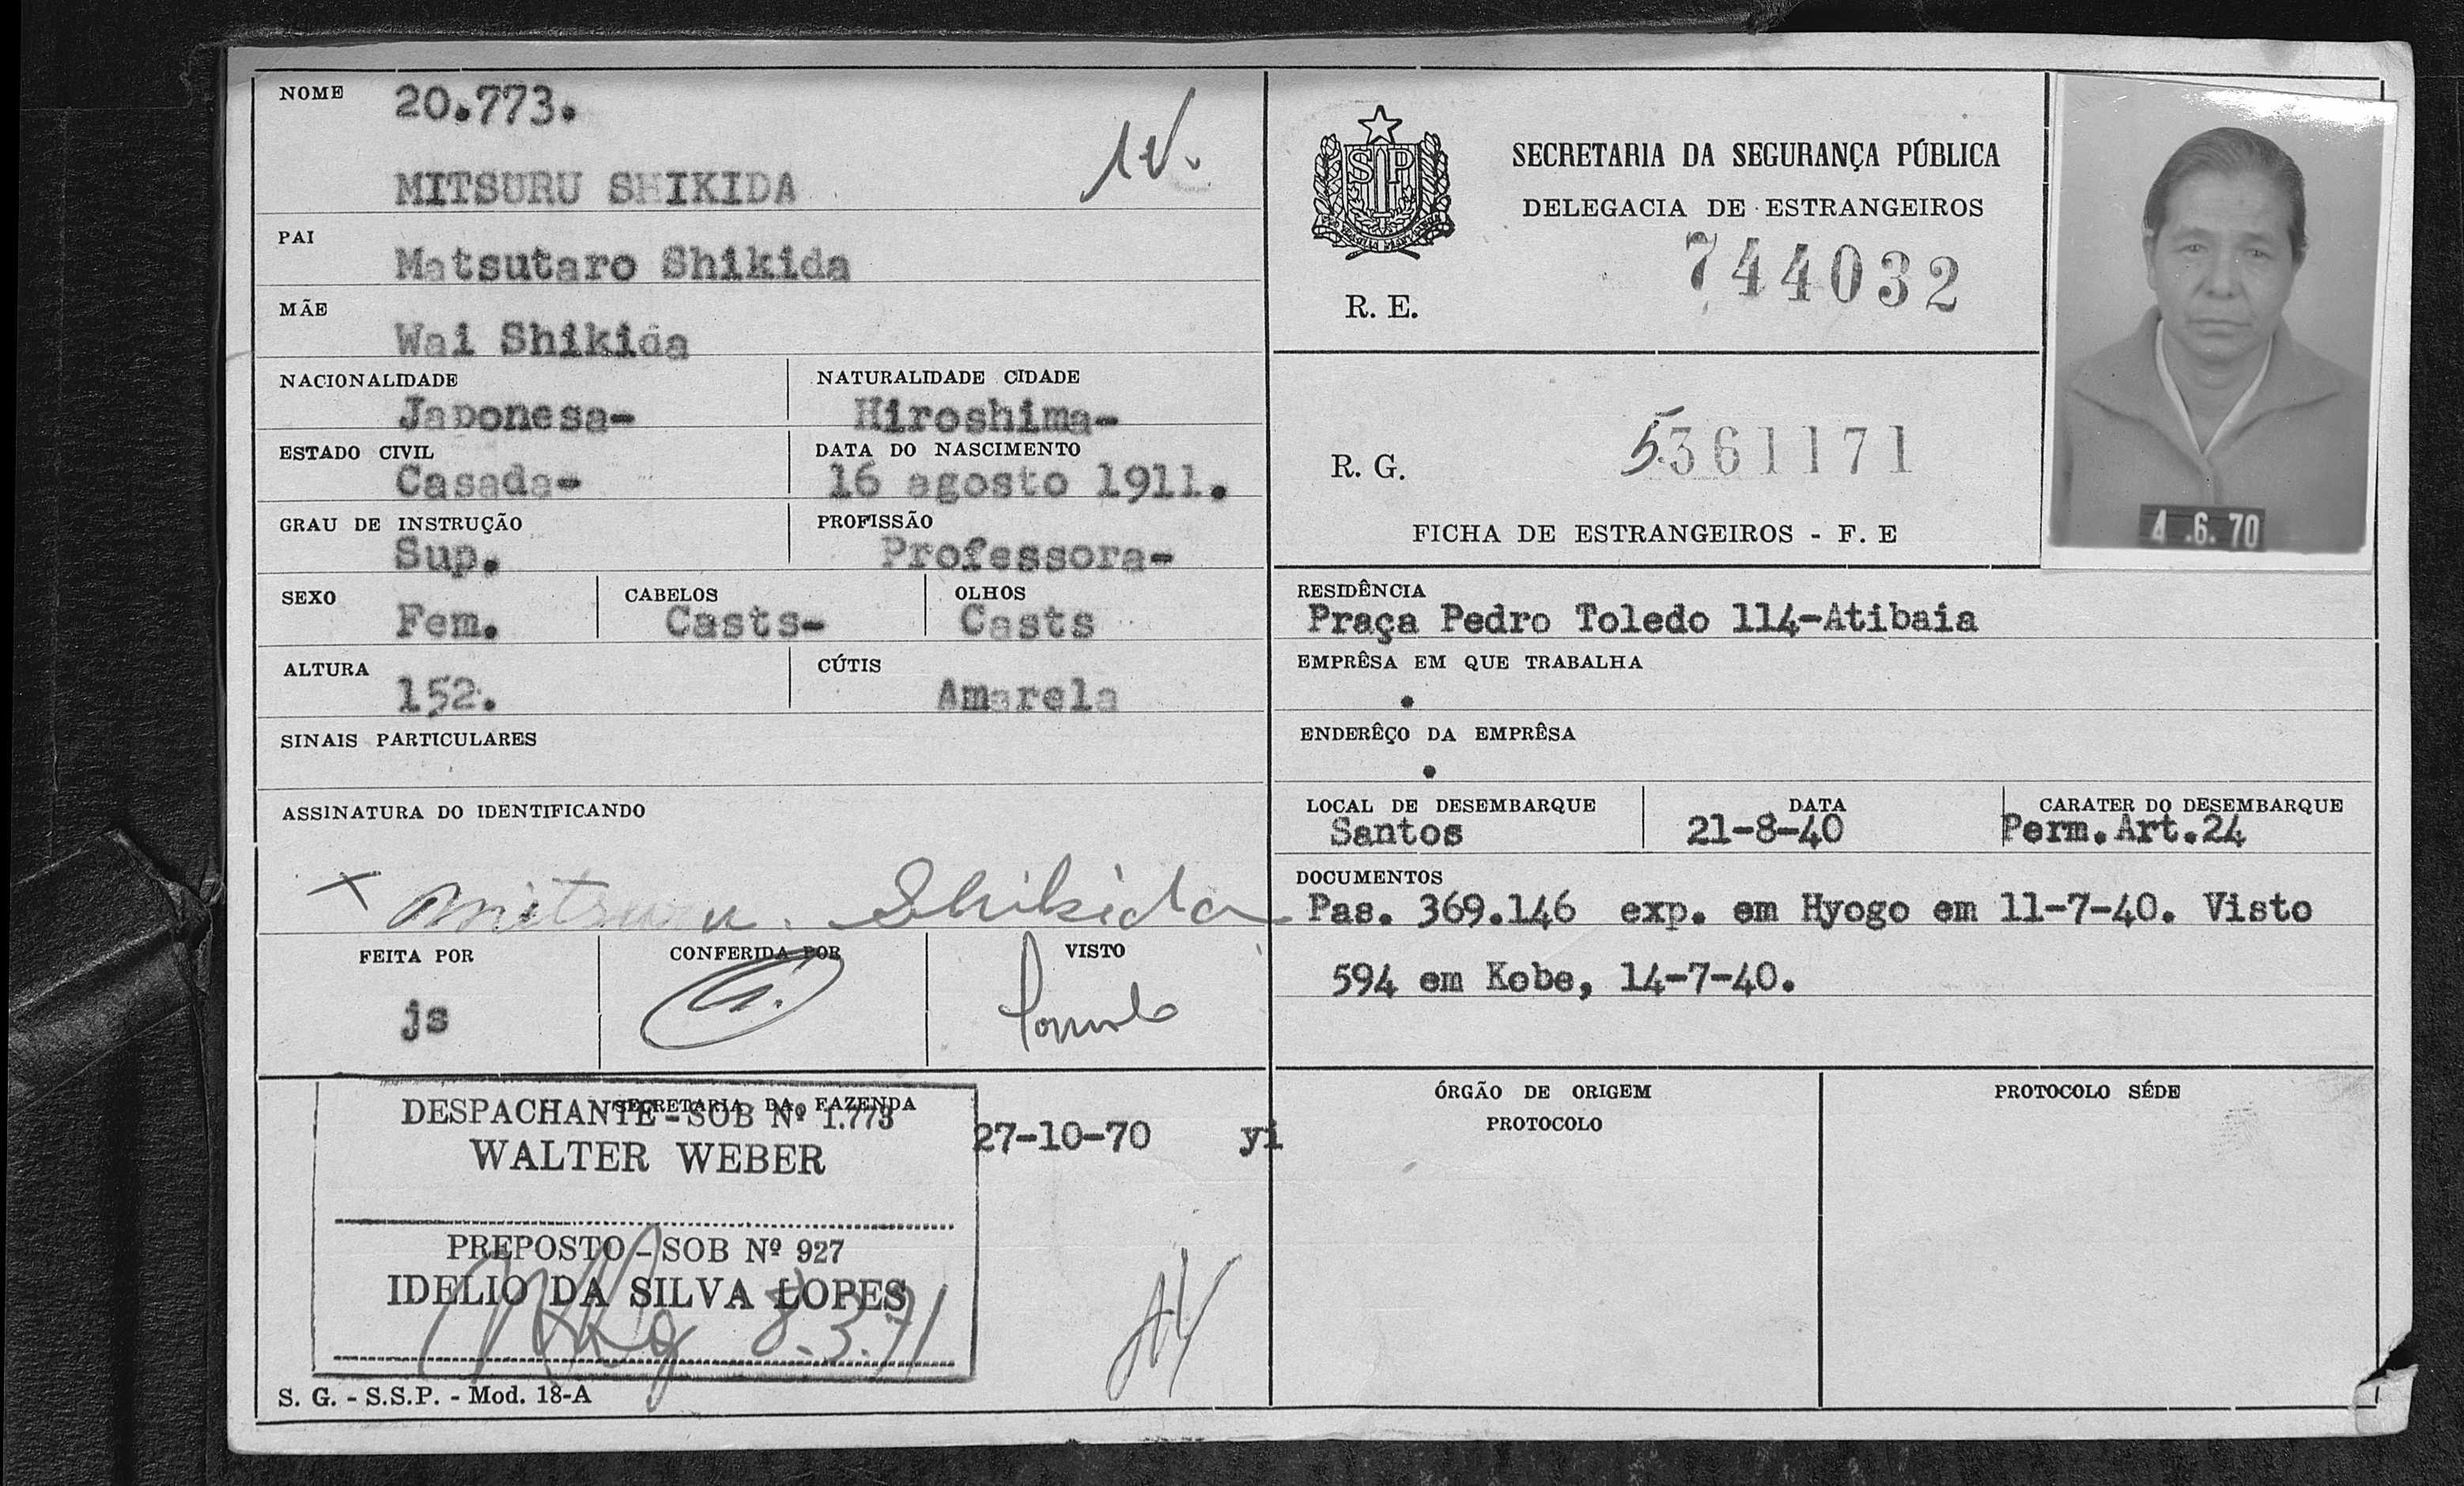 NOME 20.773.
MITSURU SHIKIDA
PAI
Matsutaro Shikida
MÃE
Wai Shikida
NACIONALIDADE
Japonesa-
NATURALIDADE CIDADE
Hiroshima-
ESTADO CIVIL
Casada-
DATA DO NASCIMENTO
16 agosto 1911.
GRAU DE INSTRUÇÃO
Sup.
PROFISSÃO
Professora-
SEXO
Fem.
CABELOS
Casts-
OLHOS
Casts
ALTURA
152.
CÚTIS
Amarela
SINAIS PARTICULARES
ASSINATURA DO IDENTIFICANDO
x Mitsuru. Shikida
FEITA POR
js
CONFERIDA POR
VISTO
SECRETARIA DA FAZENDA
DESPACHANTE - SOB Nº 1.773
WALTER WEBER
PREPOSTO - SOB Nº 927
IDELIO DA SILVA LOPES
8.3.71
27-10-70 yi
S. G. - S.S.P. - Mod. 18-A
SP
SECRETARIA DA SEGURANÇA PÚBLICA
DELEGACIA DE ESTRANGEIROS
744032
R. E.
R. G. 5.361171
FICHA DE ESTRANGEIROS - F. E
4 .6. 70
RESIDÊNCIA
Praça Pedro Toledo 114-Atibaia
EMPRÊSA EM QUE TRABALHA
.
ENDERÊÇO DA EMPRÊSA
.
LOCAL DE DESEMBARQUE
Santos
DATA
21-8-40
CARATER DO DESEMBARQUE
Perm.Art.24
DOCUMENTOS
Pas. 369.146 exp. em Hyogo em 11-7-40. Visto
594 em Kobe, 14-7-40.
ÓRGÃO DE ORIGEM
PROTOCOLO
PROTOCOLO SÉDE